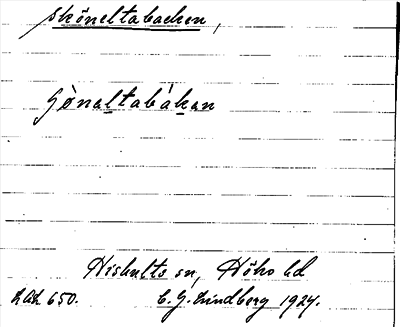 Sköneltabacken,
Gònaltabàkan
Hishults sn, Höks hd
LUA 650. C. G. Lindberg 1924.